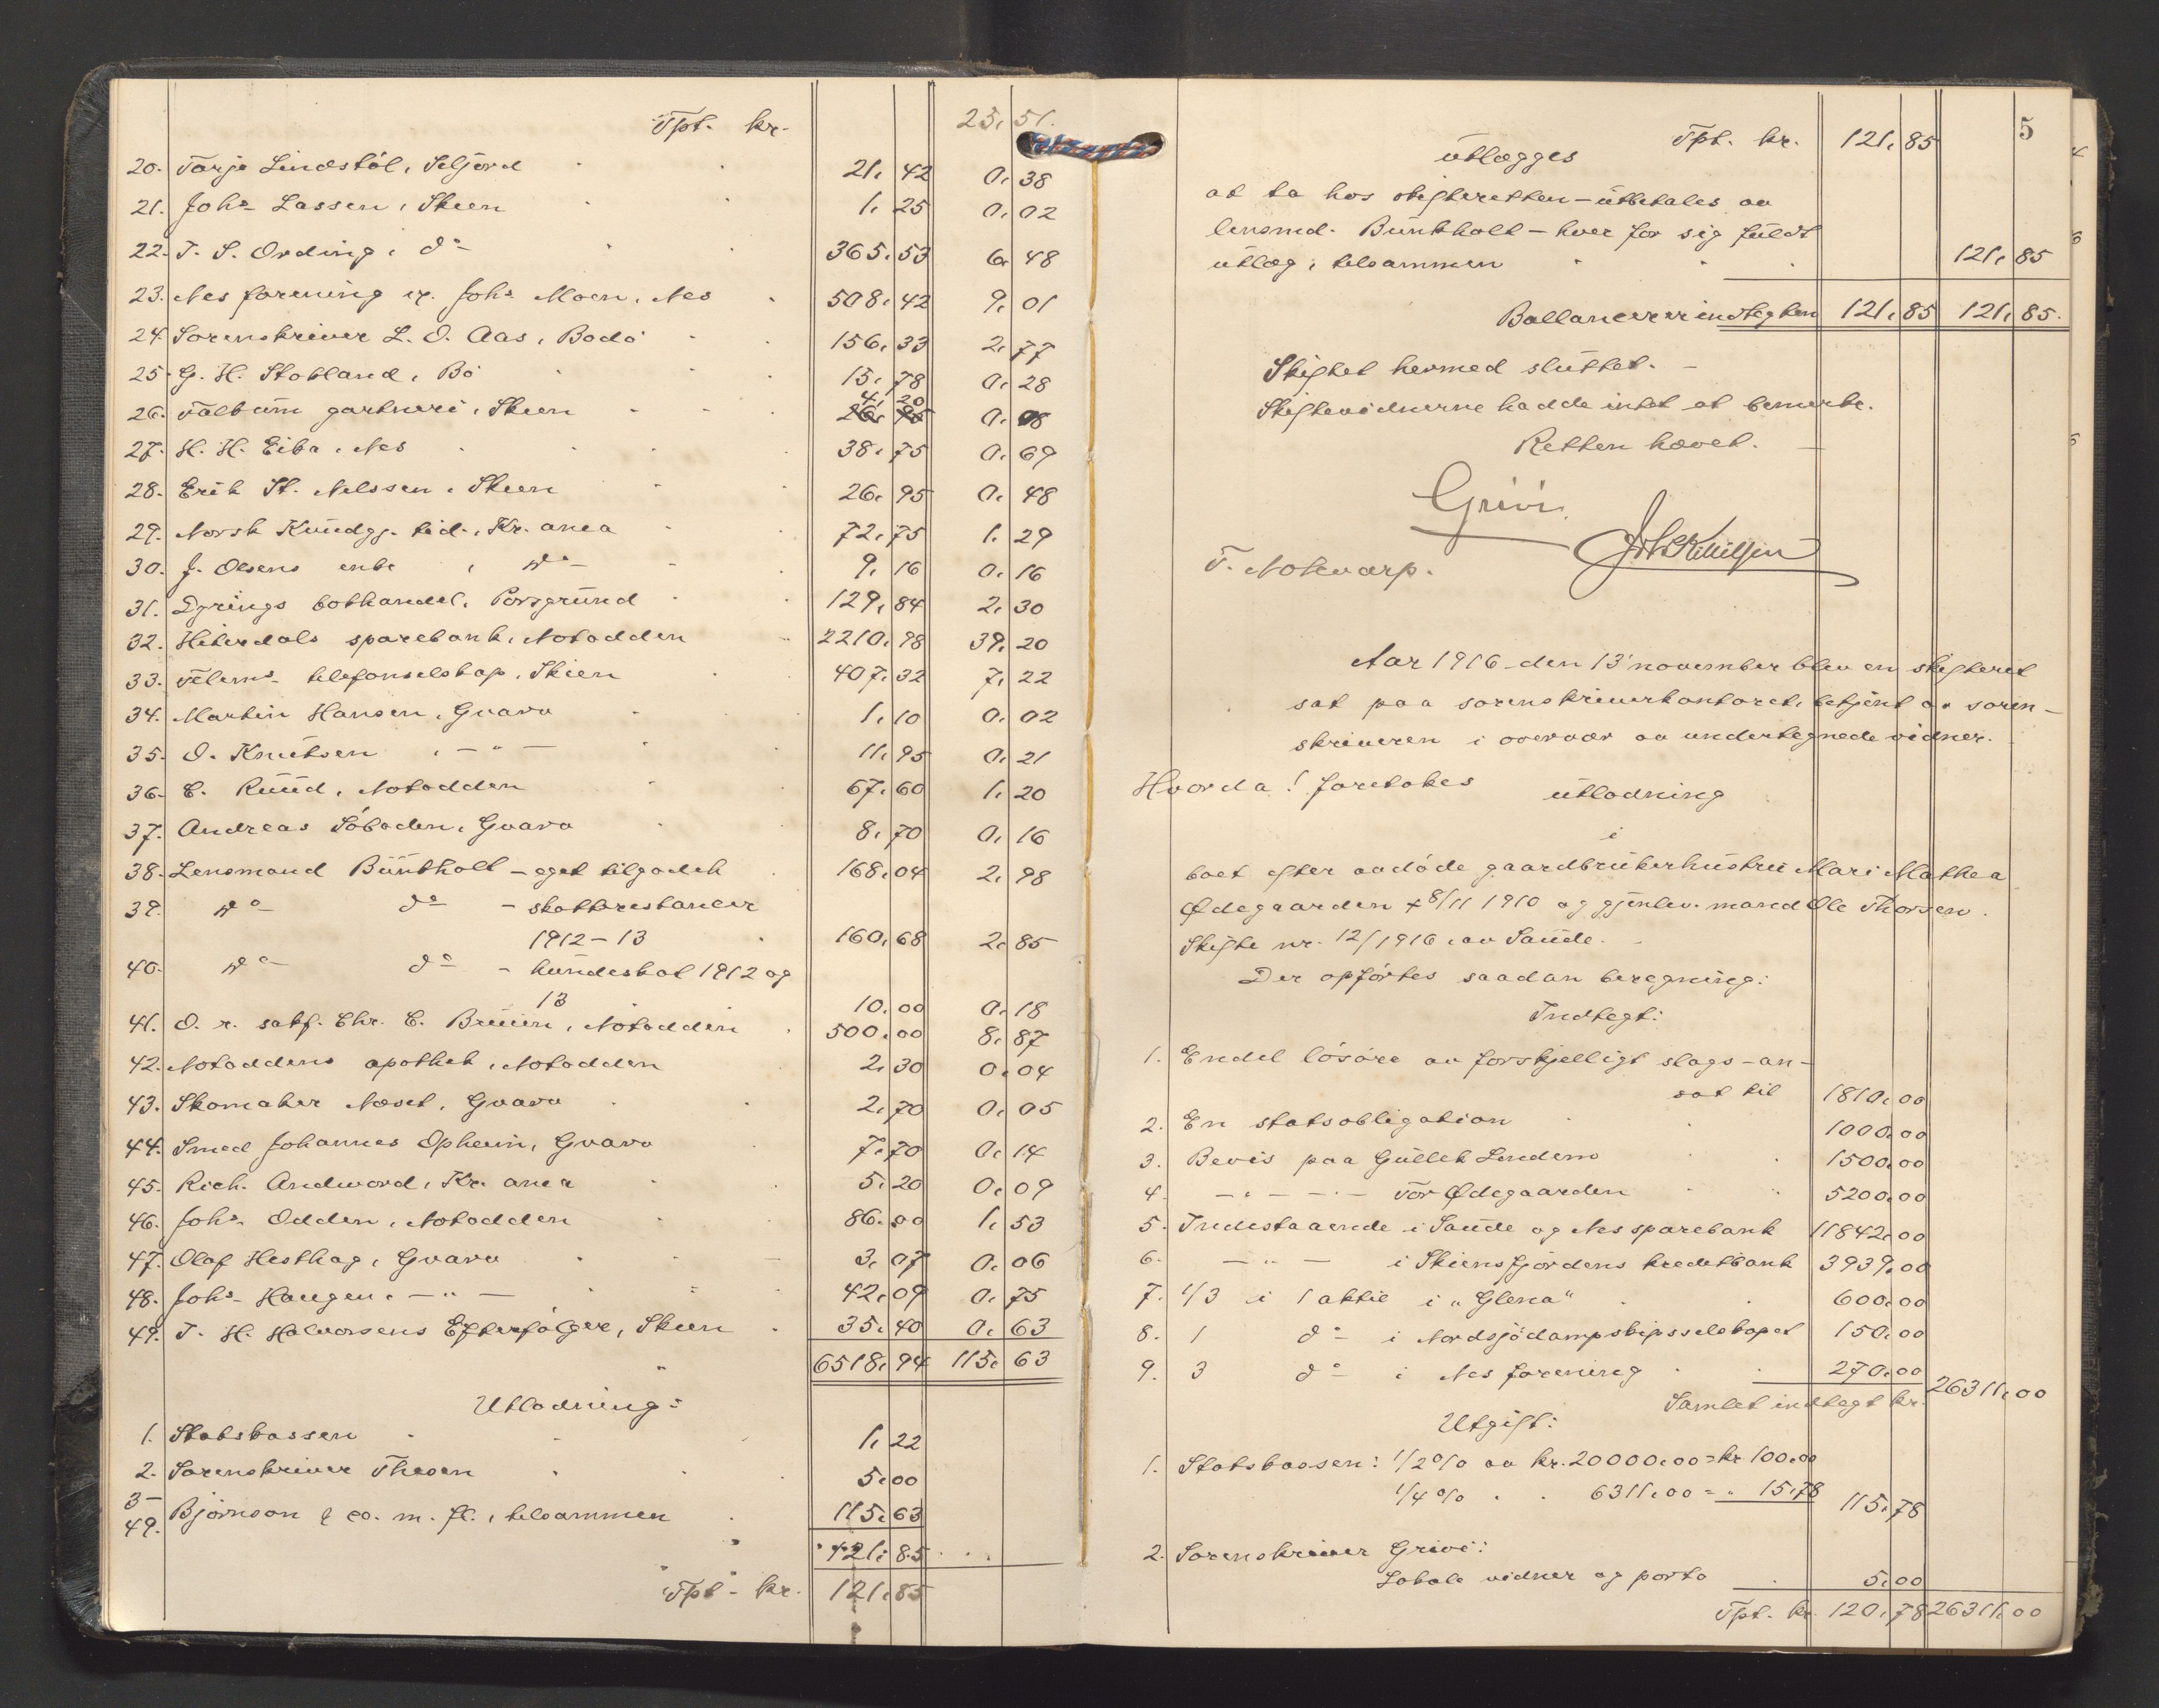 Tpt. kr. 25, 51.
20. Tarje Lindstöl, Seljord 21, 42 0, 38
21. Johs Lassen, Skien 1, 25 0, 02
22. T. S. Ording, do 365, 53 6, 48
23. Nes forening v. Johs Moen, Nes 508, 42 9, 01
24. Sorenskriver L. O. Aas, Bodö 156, 33 2, 77
25. G. H. Stokland, Bö 15, 78 0, 28
4, 20
26. Falkum gartneri, Skien 26, 95 0, 08
27. H. H. Eika, Nes 38, 75 0, 69
28. Erik St. Nilssen, Skien 26, 95 0, 48
29. Norsk Kundgj. tid., Kr. ania 72, 75 1, 29
30. J. Olsens enke, do 9, 16 0, 16
31. Dyrings bokhandel, Porsgrund 129, 84 2, 30
32. Hiterdals sparebank, Notodden 2210, 98 39, 20
33. Telem. telefonselskap, Skien 407, 32 7, 22
34. Martin Hansen, Gvarv 1, 10 0, 02
35. O. Knutsen, - " - 11, 95 0, 21
36. E. Ruud, Notodden 67, 60 1, 20
37. Andreas Söboden, Gvarv 8, 70 0, 16
38. Lensmand Bunkholt - eget tilgodeh 168, 04 2, 98
39. do do - skatterestancer
1912-13 160, 68 2, 85
40. do do - hundeskat 1912 og
13 10, 00 0, 18
41. O. r. sakf. Chr. C. Bruun, Notodden 500, 00 8, 87
42. Notoddens apothek, Notodden 2, 30 0, 04
43. Skomaker Næset, Gvarv 2, 70 0, 05
44. Smed Johannes Opheim, Gvarv 7, 70 0, 14
45. Rich. Andword, Kr. ania 5, 20 0, 09
46. Johs. Odden, Notodden 86, 00 1, 53
47. Olaf Hesthag, Gvarv 3, 07 0, 06
48. Johs Haugen, - " - 42, 09 0, 75
49. T. H. Halvorsens Efterfölger, Skien 35, 40 0, 63
6518, 94 115, 63
Utlodning:
1. Statskassen 1, 22
2. Sorenskriver Thesen 5, 00
3-
49. Björnson & co. m. fl., tilsammen 115, 63
121, 85
Tpt. kr. 121, 85
5
Tpt. kr. 121, 85
utlægges
at ta hos skifteretten - utbetales av
lensmd. Bunkholt - hver for sig fuldt
utlæg, tilsammen 121, 85
Ballancerer indtegten 121, 85 121, 85.
Skiftet hermed sluttet. -
Skiftevidnerne hadde intet at bemerke.
Retten hævet. -
Grivi.
T. Nokvarp.
Aar 1916 den 13 november blev en skifteret
sat paa sorenskriverkontoret, betjent av soren-
skriveren i overvær av undertegnede vidner.
Hvorda! foretokes utlodning
i
boet efter avdöde gaardbrukerhustru Mari Mathea
Ødegaarden + 8/11 1910 og gjenlev. mand Ole Thorsen.
Skifte nr. 12/1916, av Saude.
Der opförtes saadan beregning:
Indtegt:
1. Endel lösöre av forskjelligt slags - an-
sat til 1810, 00
2. En statsobligation 1000, 00
3. Bevis paa Gullek Lindem 1500, 00
4. - " - - " - Tor Ødegaarden 5200, 00
5. Indestaaende i Saude og Nes sparebank 11842, 00
6. - " - i Skiensfjordens kreditbank 3939, 00
7. 1/3 i 1 aktie i "Glena" 600, 00
8. 1 do i Nordsjödampskipsselskapet 150, 00
9. 3 do i Nes forening 270, 00
Samlet indtegt kr. 26311, 00
Utgift:
1. Statskassen: 1/2 % av kr. 20000,00 = kr. 100,00
1/4 % " " 6311,00 = " 15,78 115, 78
2. Sorenskriver Grivi:
Lokale vidner og porto 5, 00
Tpt. kr. 120, 78 26311, 00